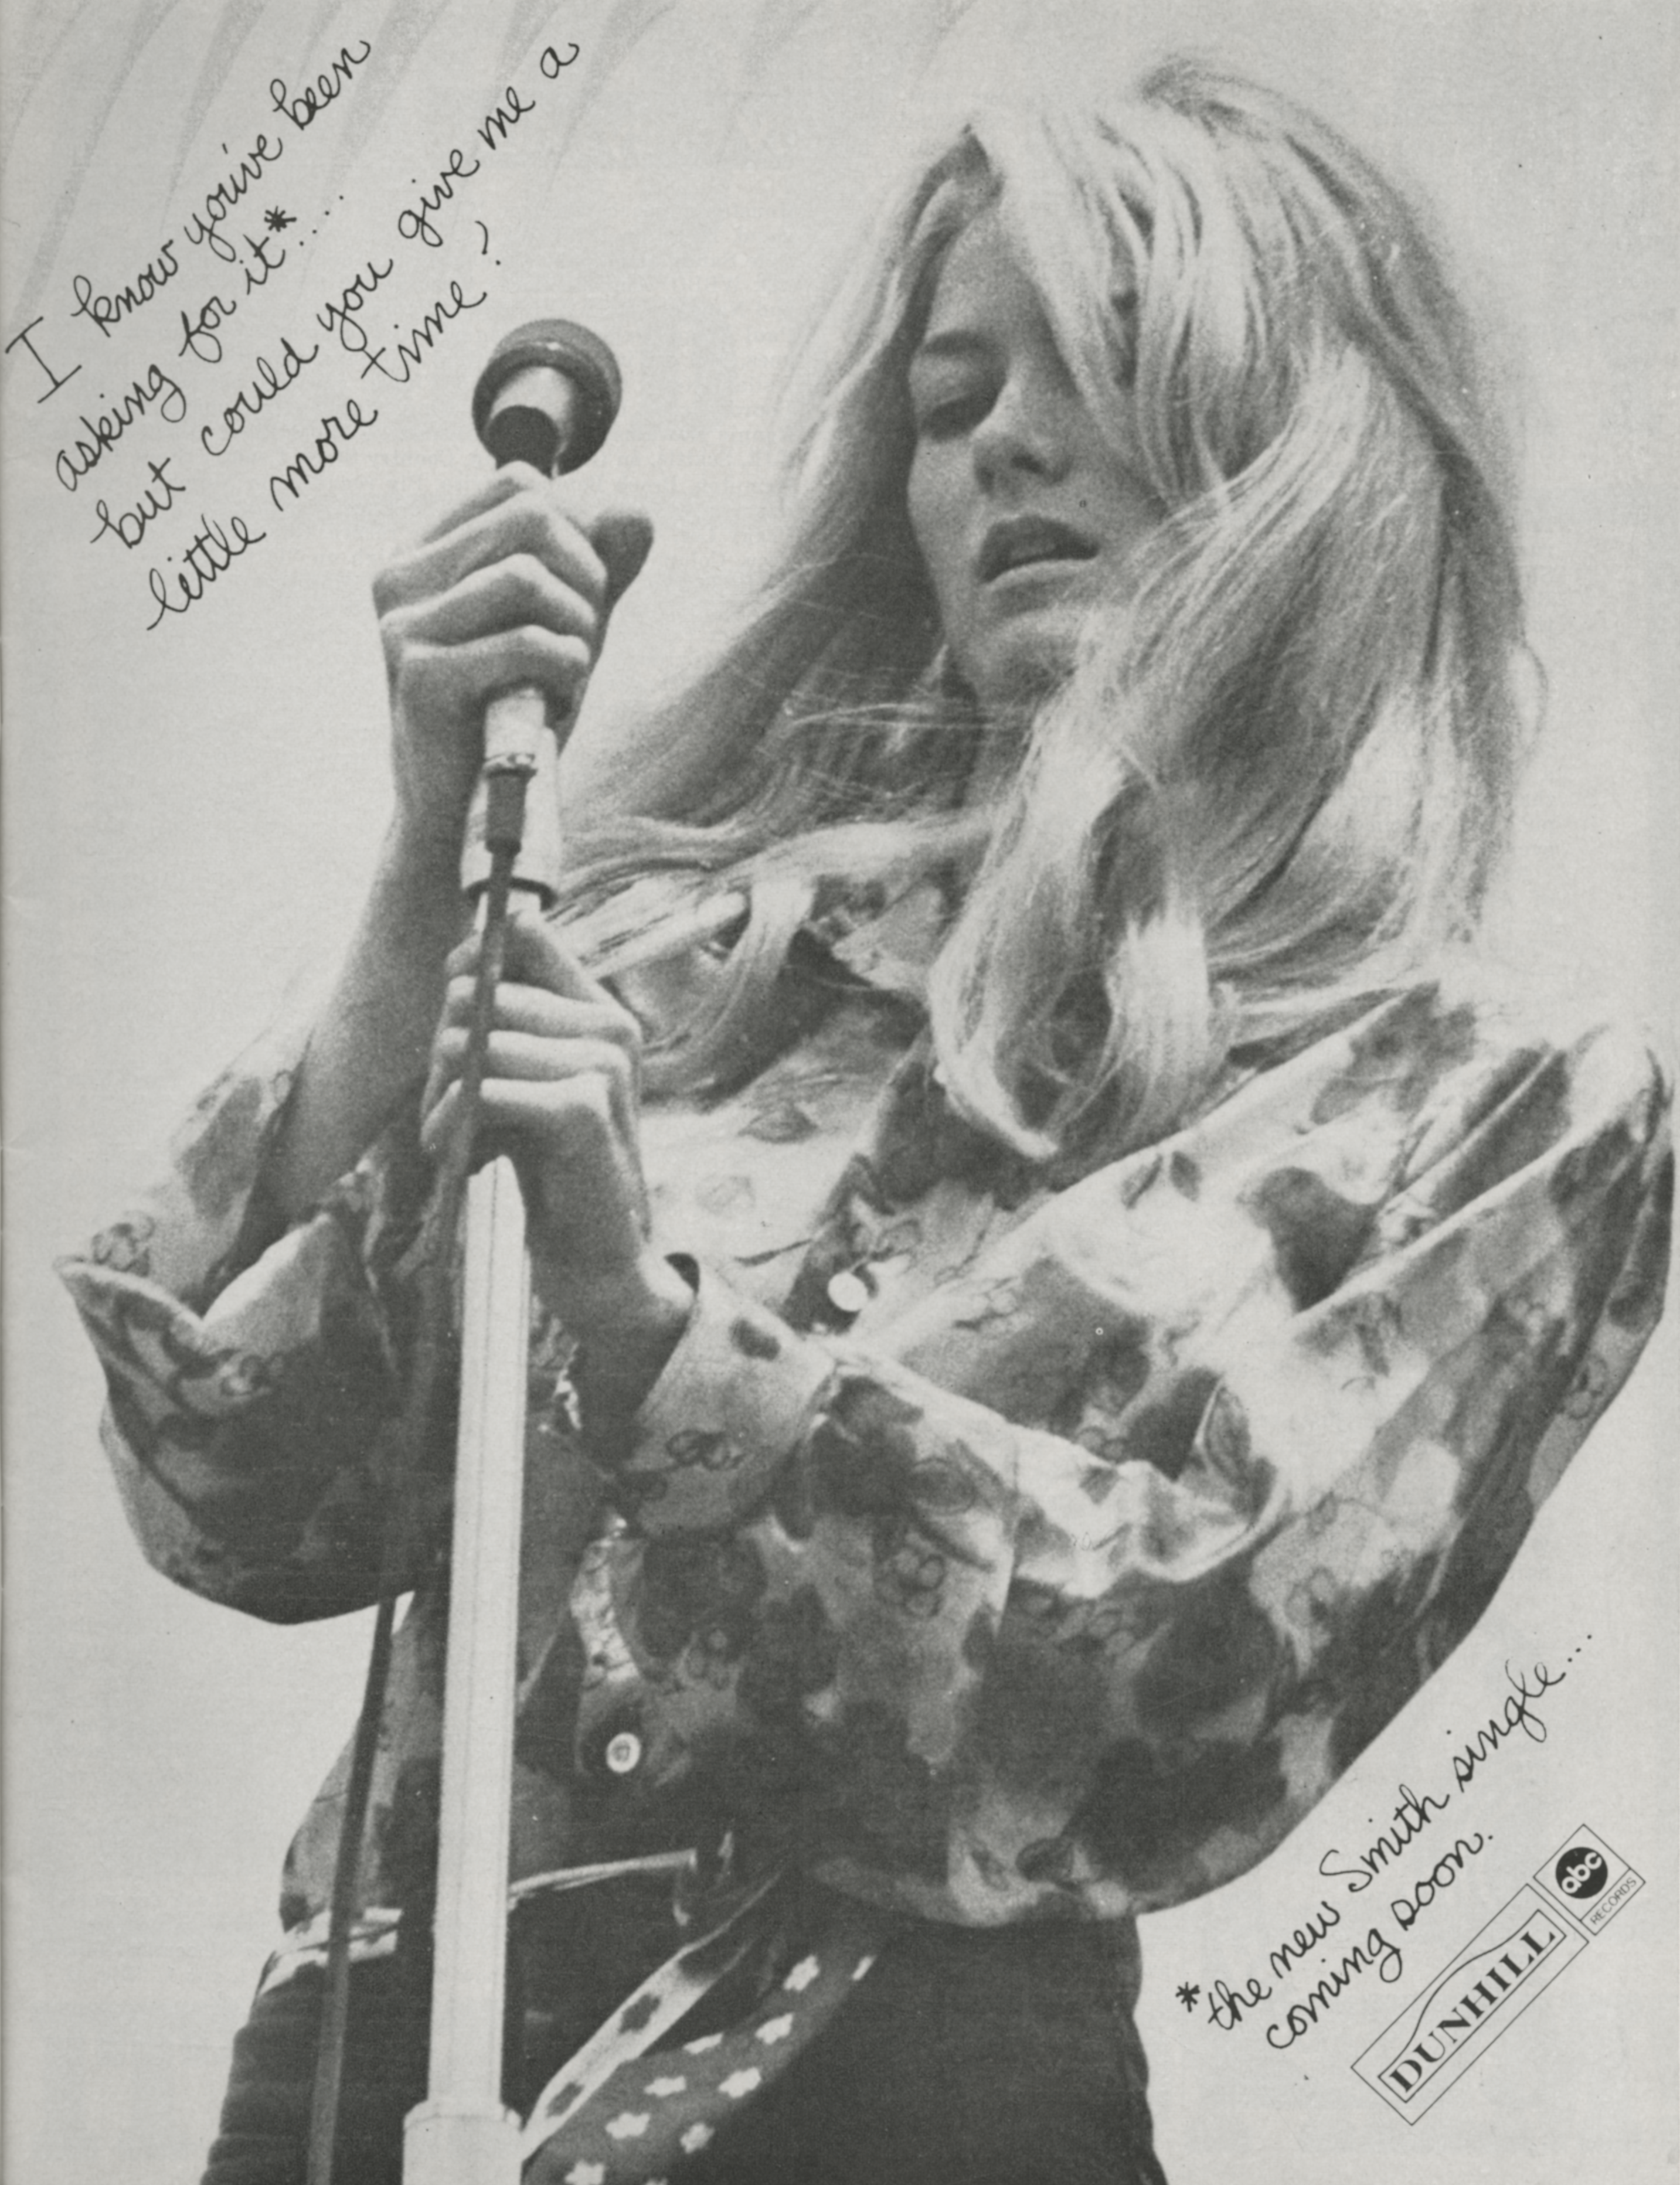 I know you've been
asking for it*....
but could you give me a
little more time?
*the new Smith single...
coming soon.
DUNHILL
abc
RECORDS